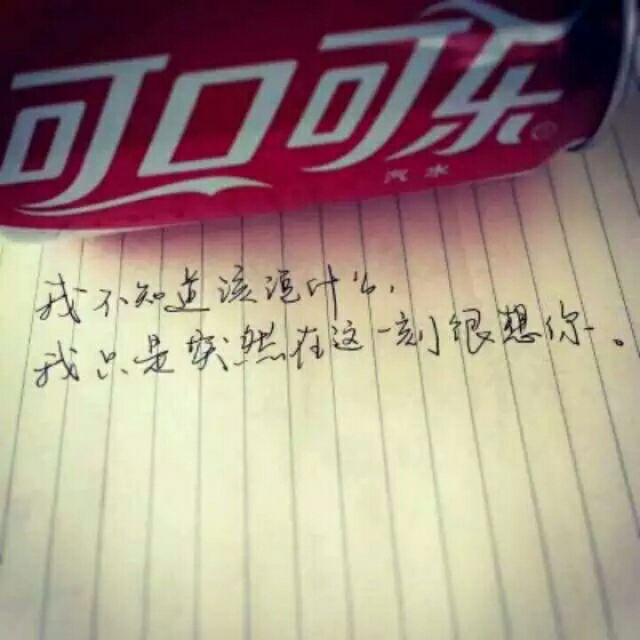 可口可乐
汽水
我不知道该说什么，
我只是突然在这一刻很想你。